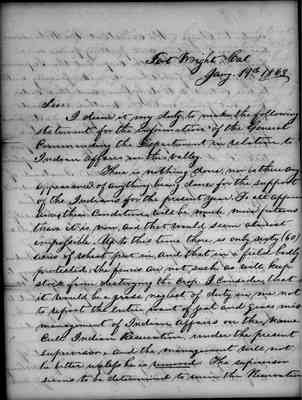 Fort Wright Cal
Jany. 19th 1863
Sir:
I deem it my duty to make the following
statement for the information of the General
Commanding the Department in relation to
Indian Affairs in this valley
There is nothing done, nor is there any
appearance of anything being done for the support
of the Indians for the present year. To all appear
ances their condition will be much more
than it is now and that would seem almost
impossible. Up to this time there is only sixty (60)
acres of wheat put in, and that in a field badly
protected, the fences are not such as will keep
stock from destroying the crop. I consider that
it would be a gross neglect of duty in me not
to report the entire want of just and gross mis
management of Indian Affairs on the Nome
Cult Indian Reservation, under the present
supervisor, and the management will not
be better unless he is removed. The supervisor
seems to be determined to ruin the Reservation